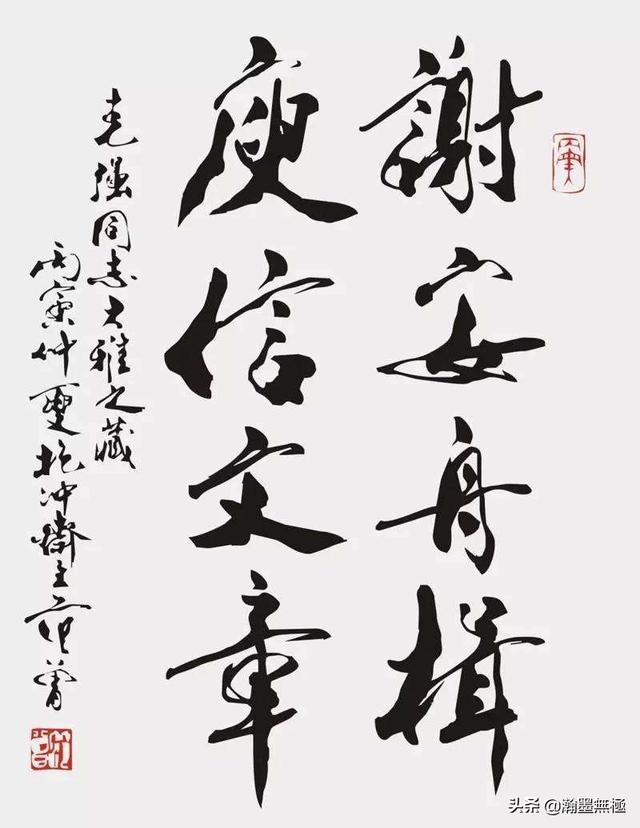 謝安舟楫
庾信文章
克强同志大雅之藏
丙寅仲夏抱冲齋主范曾
头条 @瀚墨無極